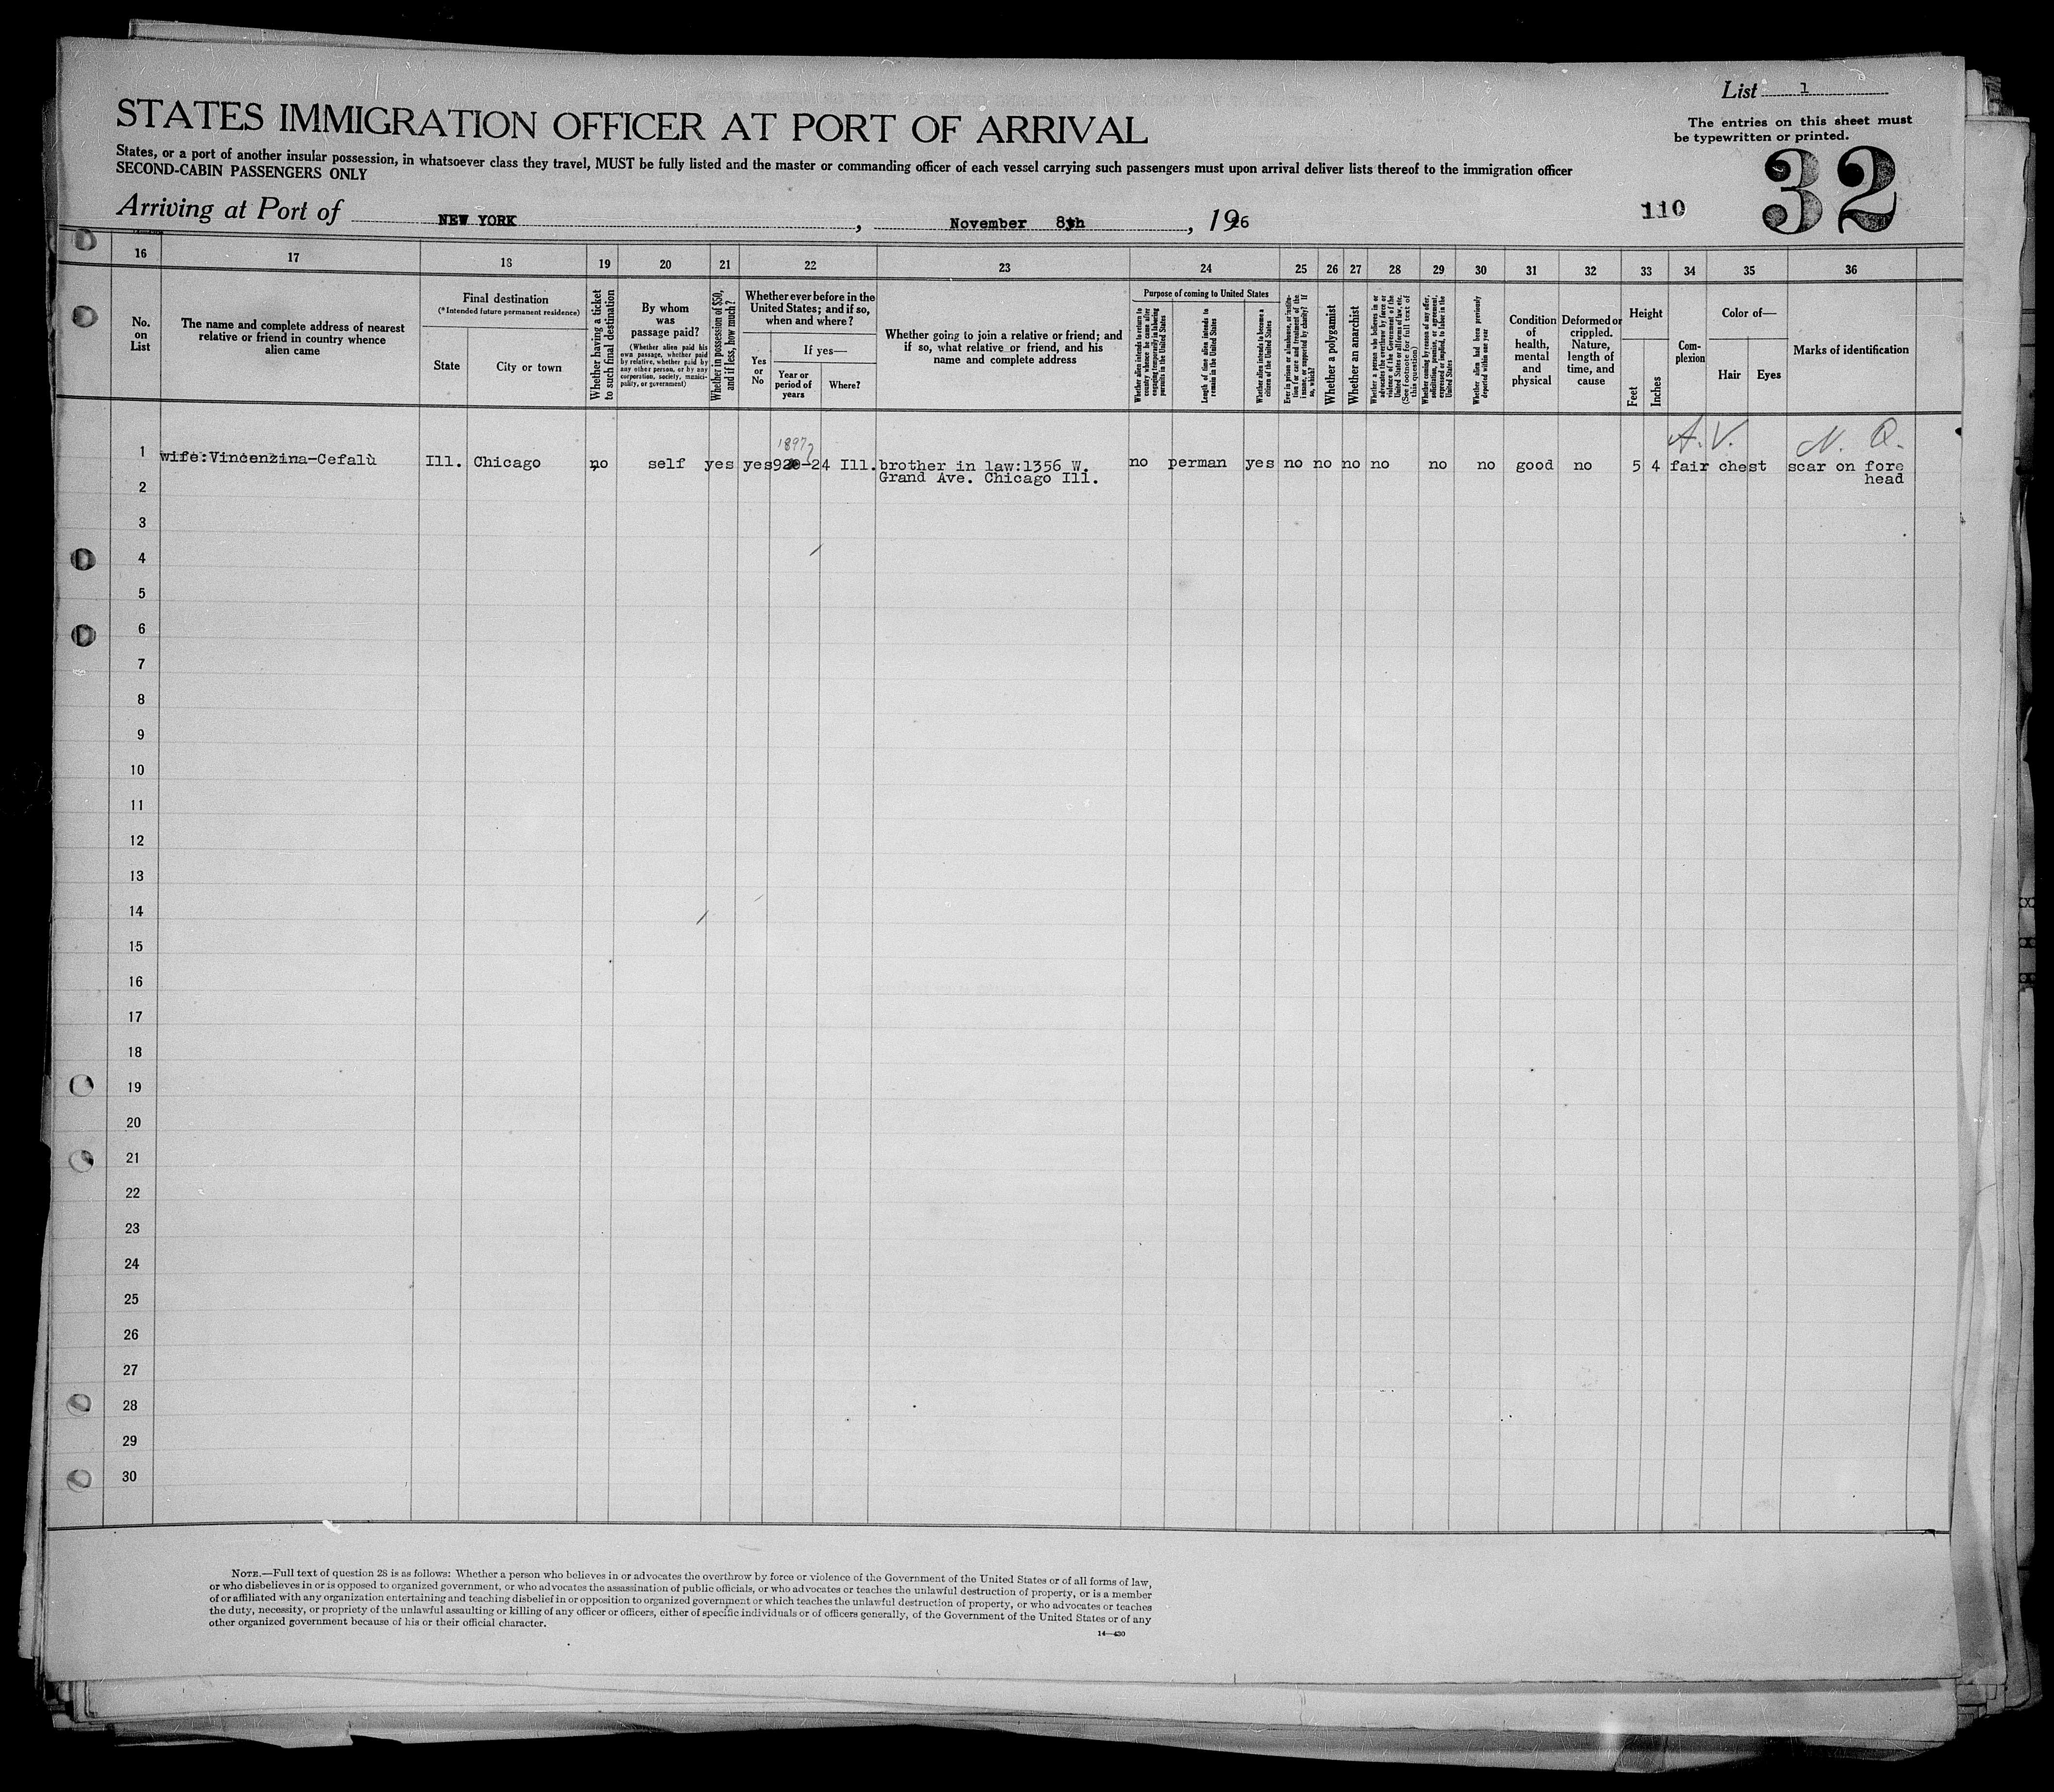 List 1
The entries on this sheet must
be typewritten or printed.
STATES IMMIGRATION OFFICER AT PORT OF ARRIVAL
States, or a port of another insular possession, in whatsoever class they travel, MUST be fully listed and the master or commanding officer of each vessel carrying such passengers must upon arrival deliver lists thereof to the immigration officer
SECOND-CABIN PASSENGERS ONLY
32
110
Arriving at Port of NEW YORK, November 8th, 1926
16 17 18 19 20 21 22 23 24 25 26 27 28 29 30 31 32 33 34 35 36
No.
on
List
The name and complete address of nearest
relative or friend in country whence
alien came
Final destination
(*Intended future permanent residence)
State
City or town
Whether having a ticket
to such final destination
By whom
was
passage paid?
(Whether alien paid his
own passage, whether paid
by relative, whether paid by
any other person, or by any
corporation, society, munici-
pality, or government)
Whether in possession of $50,
and if less, how much?
Whether ever before in the
United States; and if so,
when and where?
Yes
or
No
If yes—
Year or
period of
years
Where?
Whether going to join a relative or friend; and
if so, what relative or friend, and his
name and complete address
Purpose of coming to United States
Whether alien intends to return to
country whence he came after
engaging temporarily in laboring
pursuits in the United States
Length of time alien intends to
remain in the United States
Whether alien intends to become a
citizen of the United States
Ever in prison or almshouse, or institu-
tion for care and treatment of the
insane, or supported by charity? If
so, which?
Whether a polygamist
Whether an anarchist
Whether a person who believes in or
advocates the overthrow by force or
violence of the Government of the
United States or all forms of law, etc.
(See footnote for full text of
this question)
Whether coming by reason of any offer,
solicitation, promise, or agreement,
expressed or implied, to labor in the
United States
Whether alien had been previously
deported within one year
Condition
of
health,
mental
and
physical
Deformed or
crippled.
Nature,
length of
time, and
cause
Height
Feet
Inches
Com-
plexion
Color of—
Hair
Eyes
Marks of identification
1897
A. V.
N. Q.
1 wife:Vincenzina-Cefalù Ill. Chicago no self yes yes 920-24 Ill. brother in law:1356 W. no perman yes no no no no no no good no 5 4 fair chest scar on fore
Grand Ave. Chicago Ill. head
2
3
4
5
6
7
8
9
10
11
12
13
14
15
16
17
18
19
20
21
22
23
24
25
26
27
28
29
30
NOTE.—Full text of question 28 is as follows: Whether a person who believes in or advocates the overthrow by force or violence of the Government of the United States or of all forms of law,
or who disbelieves in or is opposed to organized government, or who advocates the assassination of public officials, or who advocates or teaches the unlawful destruction of property, or is a member
of or affiliated with any organization entertaining and teaching disbelief in or opposition to organized government or which teaches the unlawful destruction of property, or who advocates or teaches
the duty, necessity, or propriety of the unlawful assaulting or killing of any officer or officers, either of specific individuals or of officers generally, of the Government of the United States or of any
other organized government because of his or their official character.
14—430